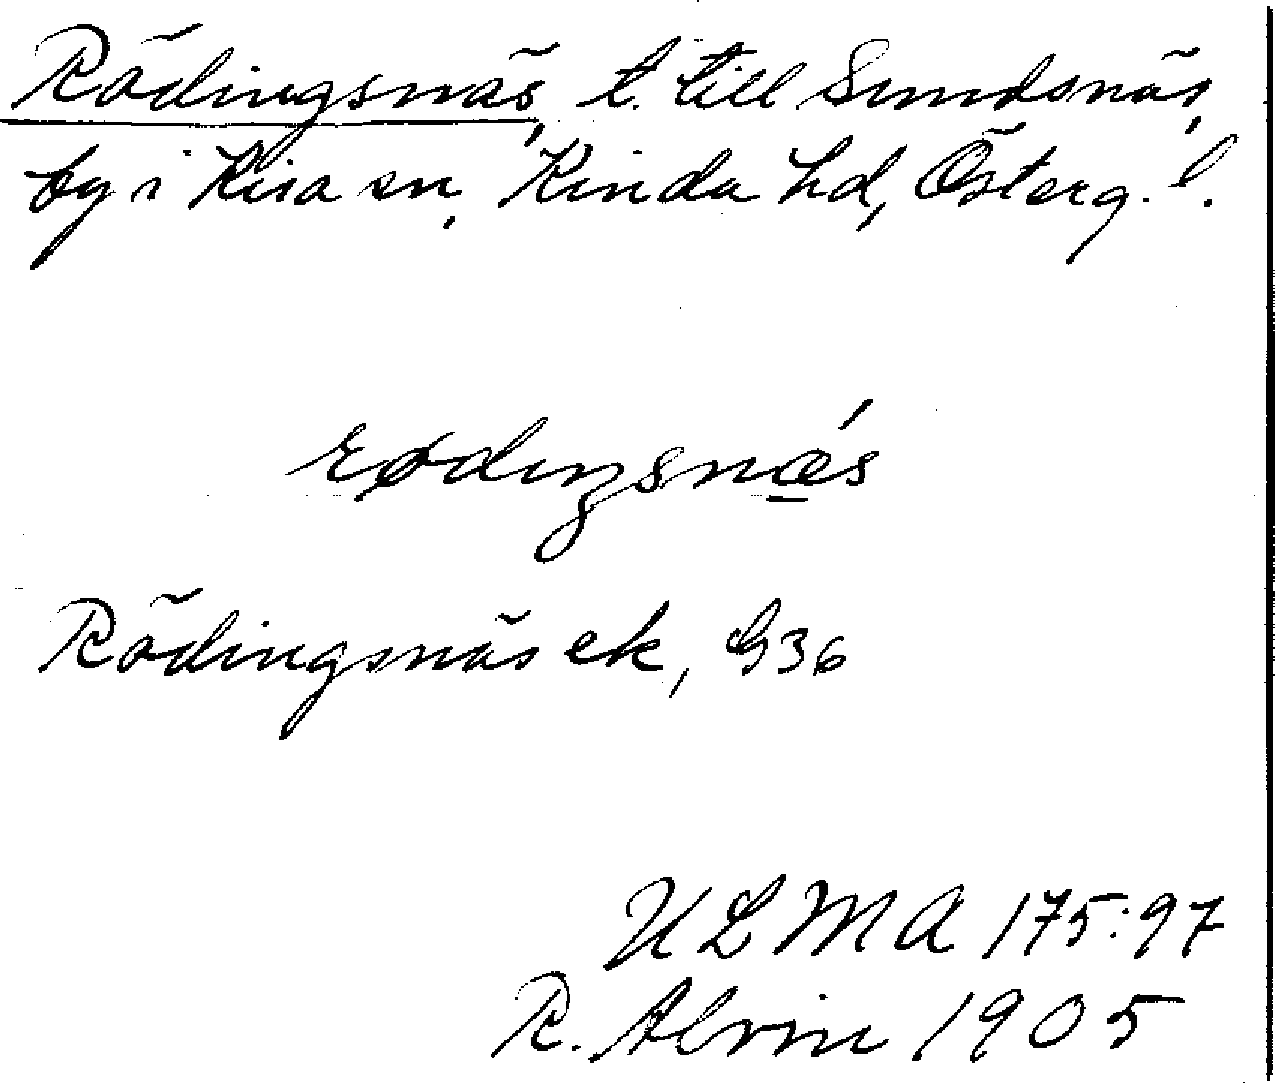 Rödingsnäs, t. till Sundsnäs,
by i Kisa sn, Kinda hd, Österg. l.
rødıŋsnǽs
Rödingsnäs ek, G36
ULMA 175:97
R. Alvin 1905